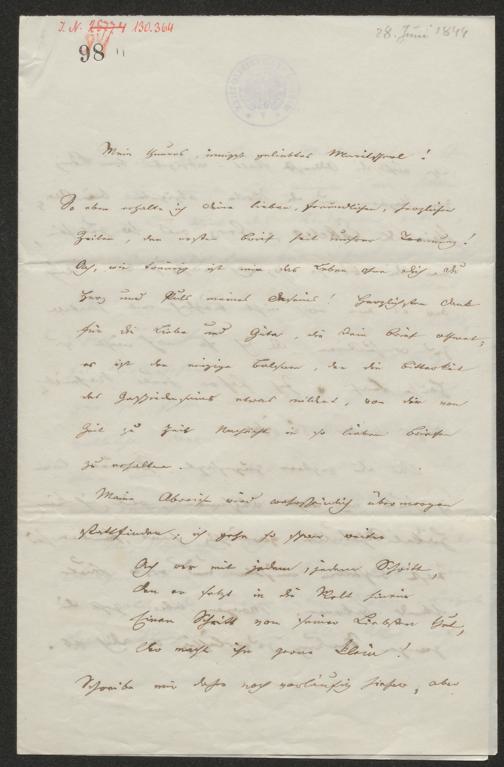 I. N. 25774 130.364
98
28. Juni 1844
Mein theures, innigst geliebtes !
So eben erhalte ich deine lieben, freundlichen, herzlichen
Zeilen, den ersten Brief seit unserer Trennung!
Ach, wie traurig ist mir das Leben ohne dich, du
Herz und Puls meines Daseins! Herzlichsten Dank
für die Liebe und Güte, die Dein Brief athmet,
es ist der einzige Balsam, der die Bitterkeit
des Geschiedenseins etwas mildert, von dir von
Zeit zu Zeit Nachricht in so lieben Briefen
zu erhalten.
Meine Abreise wird wahrscheinlich übermorgen
stattfinden; ich gehe so schwer weiter
Ach wer mit jedem, jedem Schritt
Den er setzt in die Welt hinein
Einen Schritt von seiner Liebsten thut,
Der macht ihn gerne klein!
Schreibe mir daher noch vorläufig hieher, aber